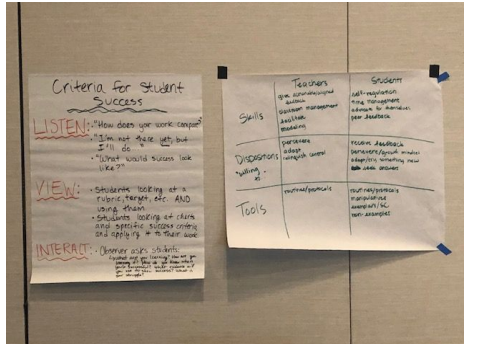 Criteria for Student
Success
LISTEN: • "How does your work compare?"
• "I'm not there yet, but
I'll do
• "What would success look
like?"
VIEW: • Students looking at a
rubric, target, etc. AND
using them.
• Students looking at charts
and specific success criteria
and applying it to their work
INTERACT: • Observer asks students:
Teachers
Students
Skills
give actionable/aligned
feedback
classroom management
facilitate
modeling
self-regulation
time management
advocate for themselves
peer feedback
Dispositions
"willing
persevere
adapt
relinquish control
receive feedback
persevere/growth mindset
adapt/try something new
seek answers
Tools
routines/protocols
routines/protocols
manipulatives
exemplars/SC
non-examples